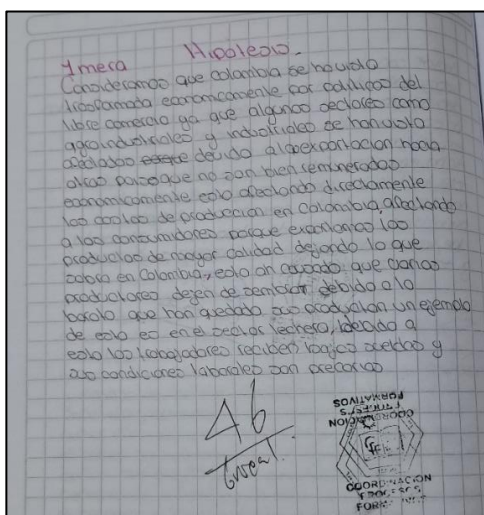 1mera Hipotesis.
Consideramos que colombia se ha visto
trasformada economicamente por políticas del
libre comercio ya que algunos sectores como
agroindustriales y industriales se han visto
afectados devido a la exportacion hacia
otros paises que no son bien remunerados
economicamente esto afectando directamente
los costos de produccion en Colombia, afectando
a los consumidores porque exportamos los
productos de mayor calidad dejando lo que
sobra en Colombia, esto an causado que varios
productores dejen de sembrar debido a lo
barato que han quedado sus productos un ejemplo
de esto es en el sector lechero, debido a
esto los trabajadores reciben bajos sueldos y
sus condiciones laborales son precarias
46
COORDINACION
FORMATIVOS
COORDINACION